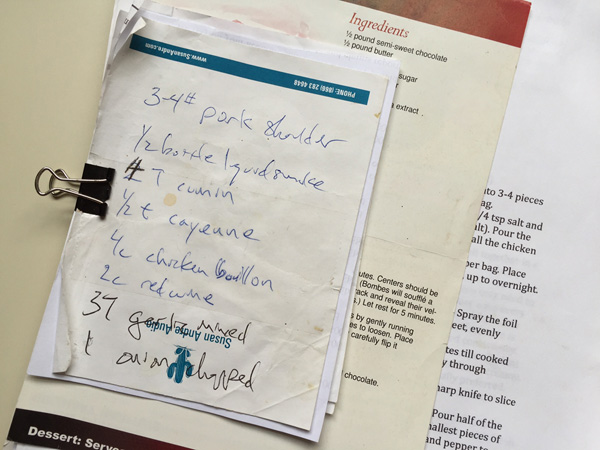 PHONE: (866) 283 4848
www.SusanAndre.com
3-4# pork shoulder
1/2 bottle liquid smoke
T cumin
1/2 t cayenne
4c chicken bouillon
2c red wine
3T garlic minced
1 onion chopped
Susan Andre Audio
Ingredients
½ pound semi-sweet chocolate
½ pound butter
sugar
extract
utes. Centers should be
(Bombes will soufflé a
ack and reveal their vel-
s.) Let rest for 5 minutes.
s by gently running
es to loosen. Place
carefully flip it
chocolate.
Dessert: Serve
nto 3-4 pieces
ag.
/4 tsp salt and
ult). Pour the
all the chicken
per bag. Place
up to overnight.
Spray the foil
eet, evenly
tes till cooked
y through
harp knife to slice
Pour half of the
mallest pieces of
and pepper to